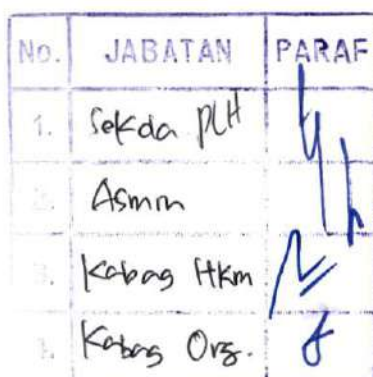 No. JABATAN PARAF
1. Sekda PLH
2. Asmin
3. Kabag Hkm
4. Kabag Org.